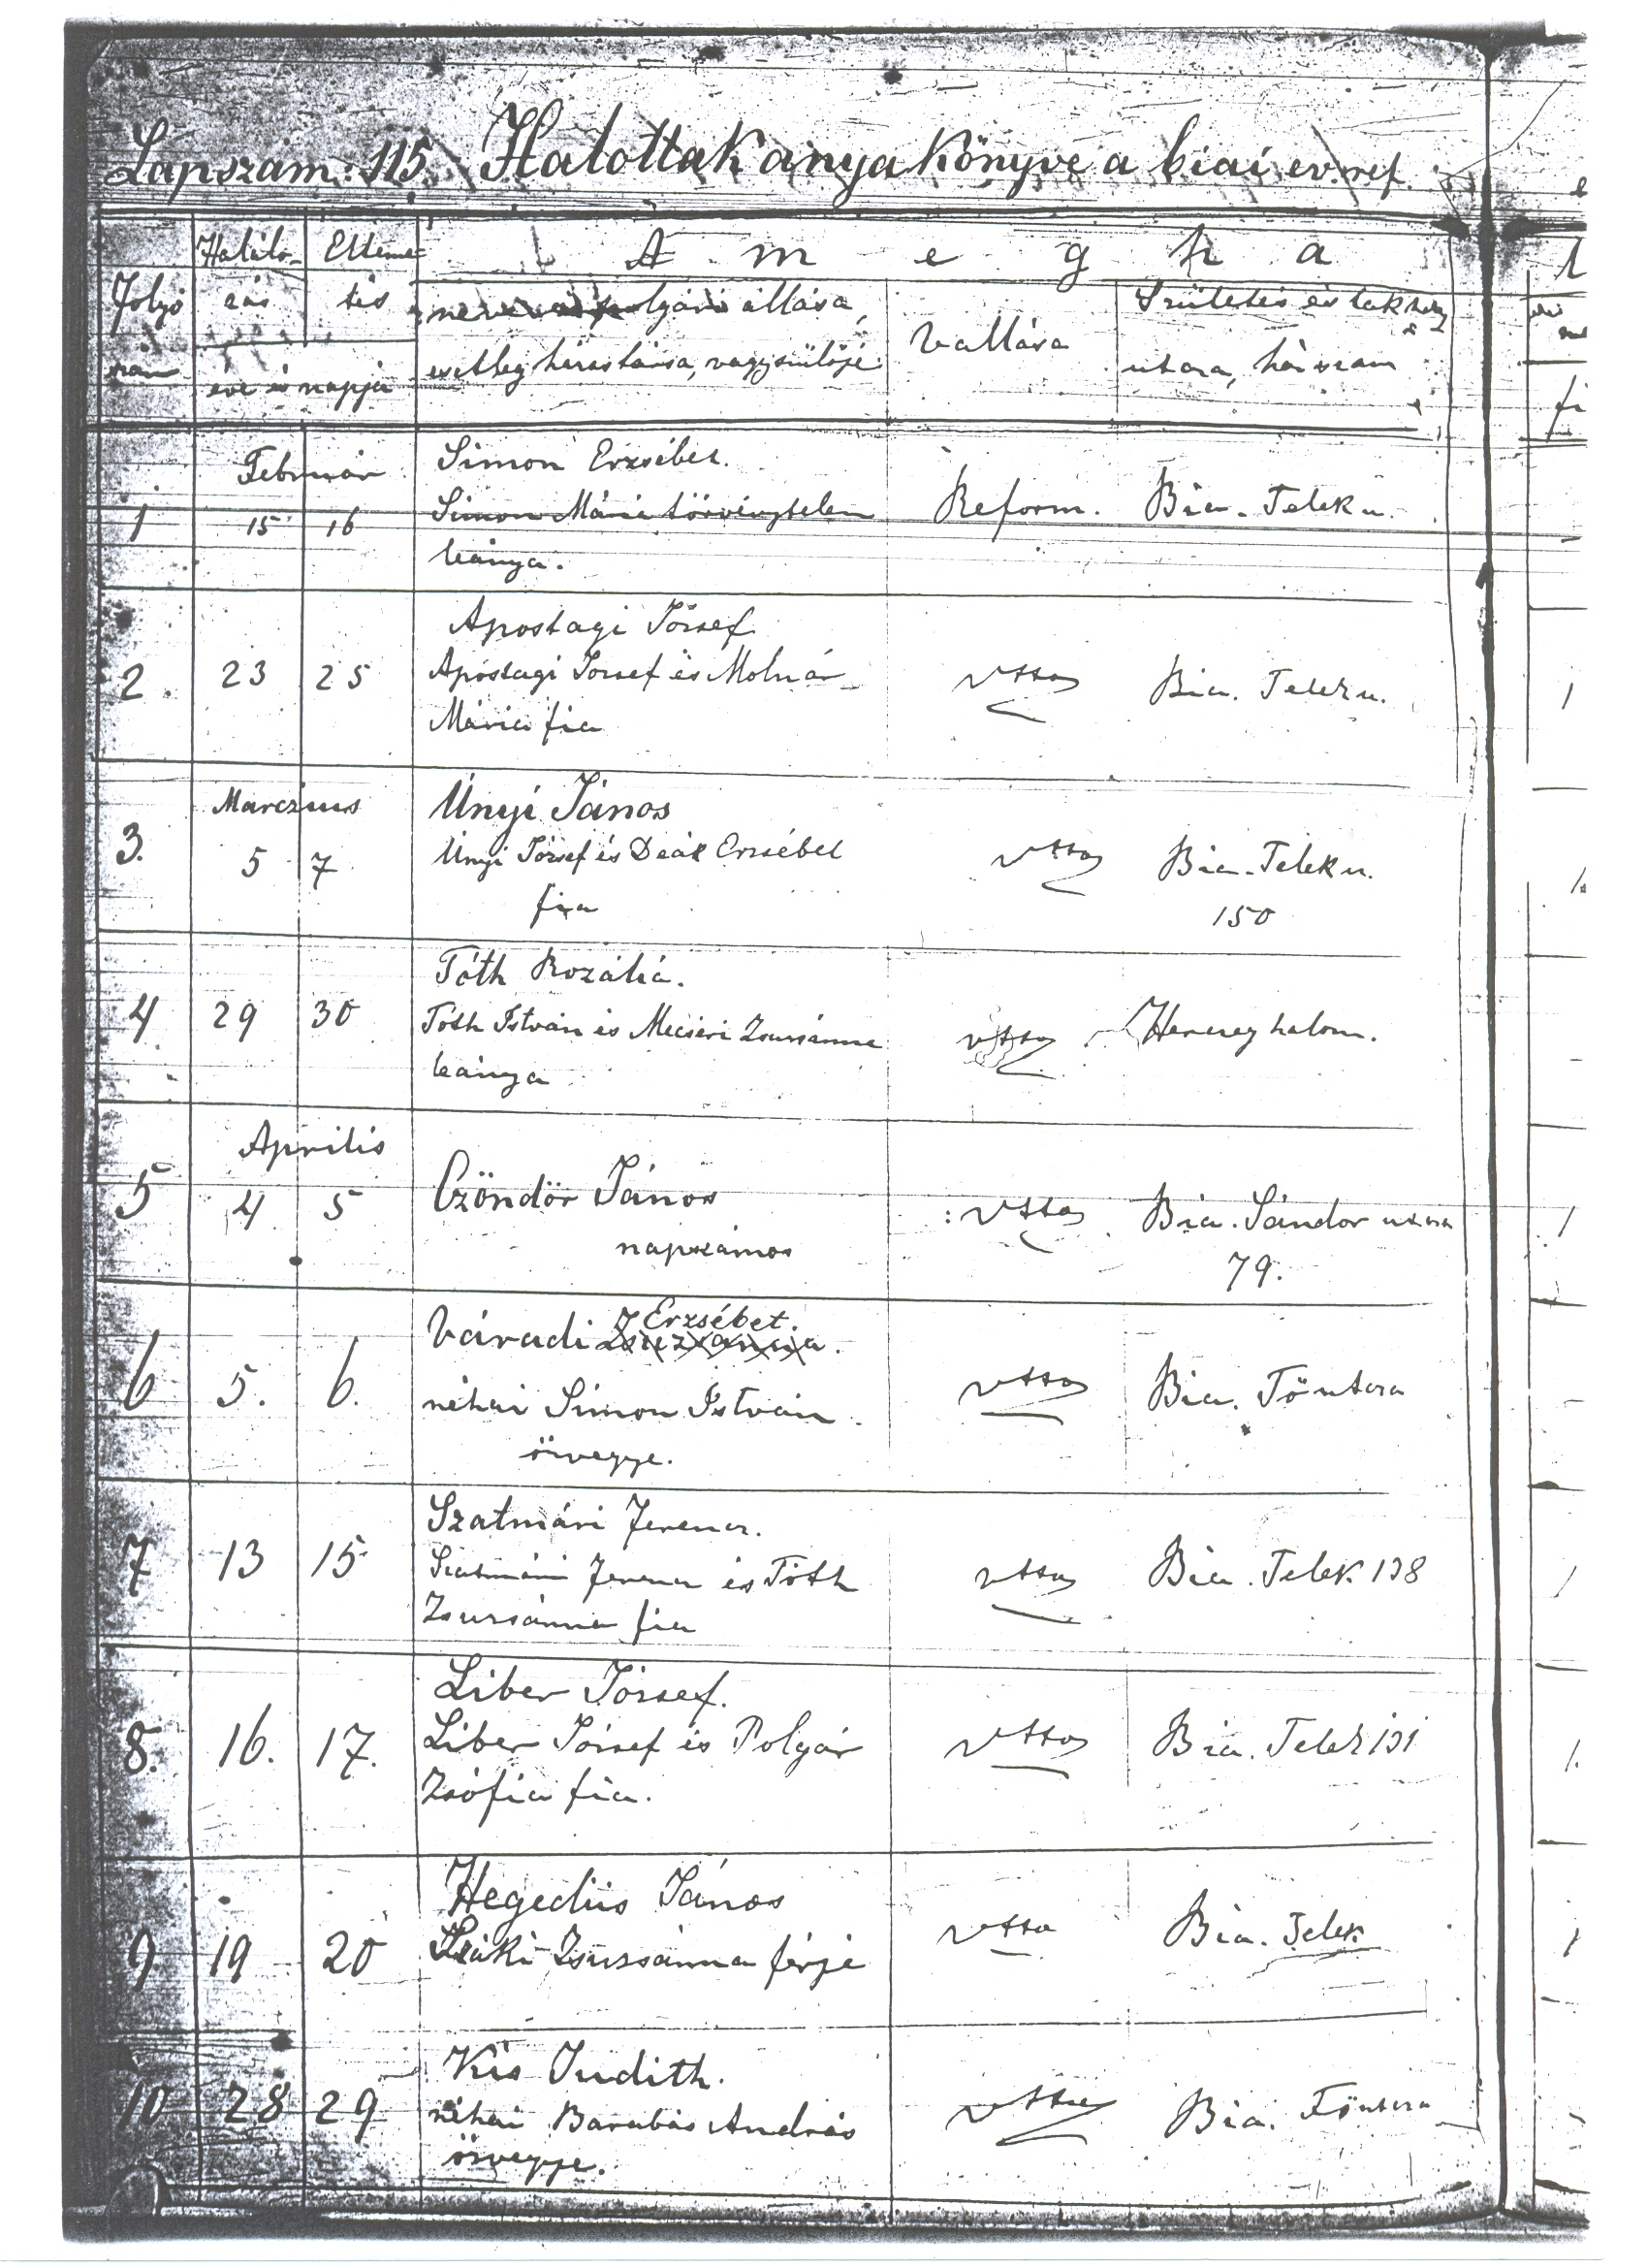 Lapszám: 115. Halottak anyakönyve a biai ev. ref.
A m e g h a
Folyó szám
Halálozás
Elteme- tés
éve és napja
neve és polgári állása,
esetleg házastársa, vagy szülőjé
Vallása
Születés és lakhely
utca, házszám
Február
1 15 16
Simon Erzsébet.
Simon Mária törvénytelen
leánya.
Reform.
Bia. Telek u.
2. 23 25
Apostagi József
Apostagi József és Molnár
Mária fia
Bia. Telek u.
Marczius
3. 5 7
Unyi János
Unyi József és Deák Erzsébet
fia
Bia. Telek u.
150
4 29 30
Tóth Rozália.
Tóth István és Mecséri Zsuzsánna
leánya
Herczeghalom.
Április
5 4 5
Czöndör János
napszámos
Bia. Sándor utca
79.
6 5. 6.
Erzsébet.
Váradi Zsuzsanna.
néhai Simon István
özvegye.
Bia. Főutca
7 13 15
Szatmári Ferencz.
Szatmári Ferencz és Tóth
Zsuzsánna fia
Bia. Telek 138
8. 16. 17.
Liber József.
Liber József és Polgár
Zsófia fia.
Bia. Telek 131
9 19 20
Hegedüs János
Száki Zsuzsánna férje
Bia. Telek
10 28 29
Kis Judith.
néhai Barabás András
özvegye.
Bia. Főutca